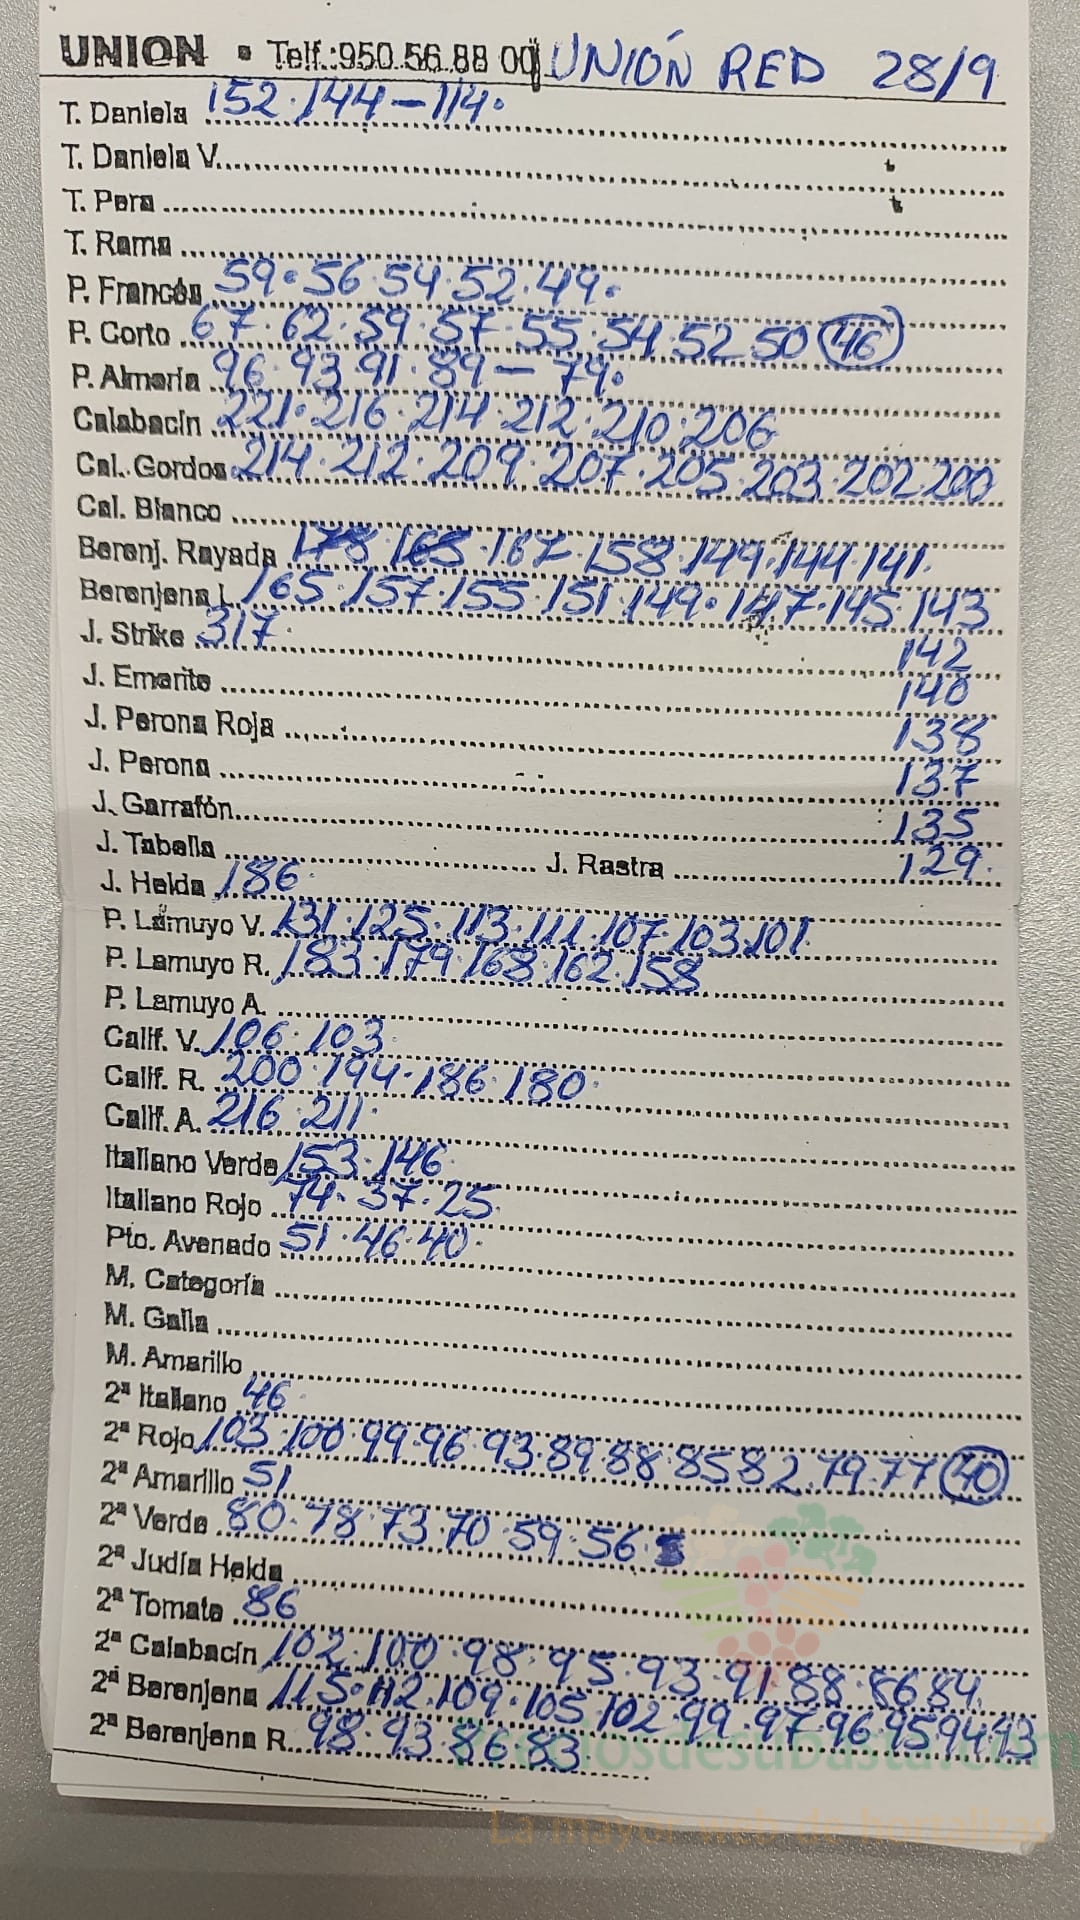 UNION • Telf.:950 56 88 00 UNIÓN RED 28/9
T. Daniela 152·144-114·
T. Daniela V.
T. Pera
T. Rama
P. Francés 59·56·54·52·49·
P. Corto 67·62·59·57·55·54·52·50 46
P. Almería 96·93·91·89-79·
Calabacín 221·216·214·212·210·206
Cal. Gordos 214·212·209·207·205·203·202·200
Cal. Blanco
Berenj. Rayada 178·168·167·158·149·144·141·
Berenjena L 165·157·155·151·149·147·145·143
J. Strike 317· 142
J. Emerite 140
J. Perona Roja 138
J. Perona 137
J. Garrafón 135
J. Tabella J. Rastra 129·
J. Helda 186·
P. Lamuyo V. 131·125·113·111·107·103·101·
P. Lamuyo R. 183·179·168·162·158
P. Lamuyo A.
Calif. V. 106·103
Calif. R. 200·194·186·180·
Calif. A. 216·211·
Italiano Verde 153·146·
Italiano Rojo 74·37·25
Pto. Avenado 51·46·40·
M. Categoría
M. Galia
M. Amarillo
2ª Italiano 46·
2ª Rojo 103·100·99·96·93·89·88·85·82·79·77 40
2ª Amarillo 51
2ª Verde 80·78·73·70·59·56·
2ª Judía Helda
2ª Tomate 86
2ª Calabacín 102·100·98·95·93·91·88·86·84·
2ª Berenjena 115·112·109·105·102·99·97·96·95·94·93
2ª Berenjena R. 98·93·86·83
Preciosdesubasta.com
La mayor web de hortalizas